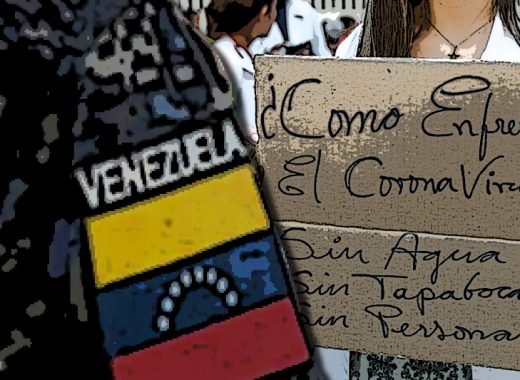 VENEZUELA
¿Como Enfre
El CoronaViru
Sin Agua
Sin Tapaboca
Sin Persona